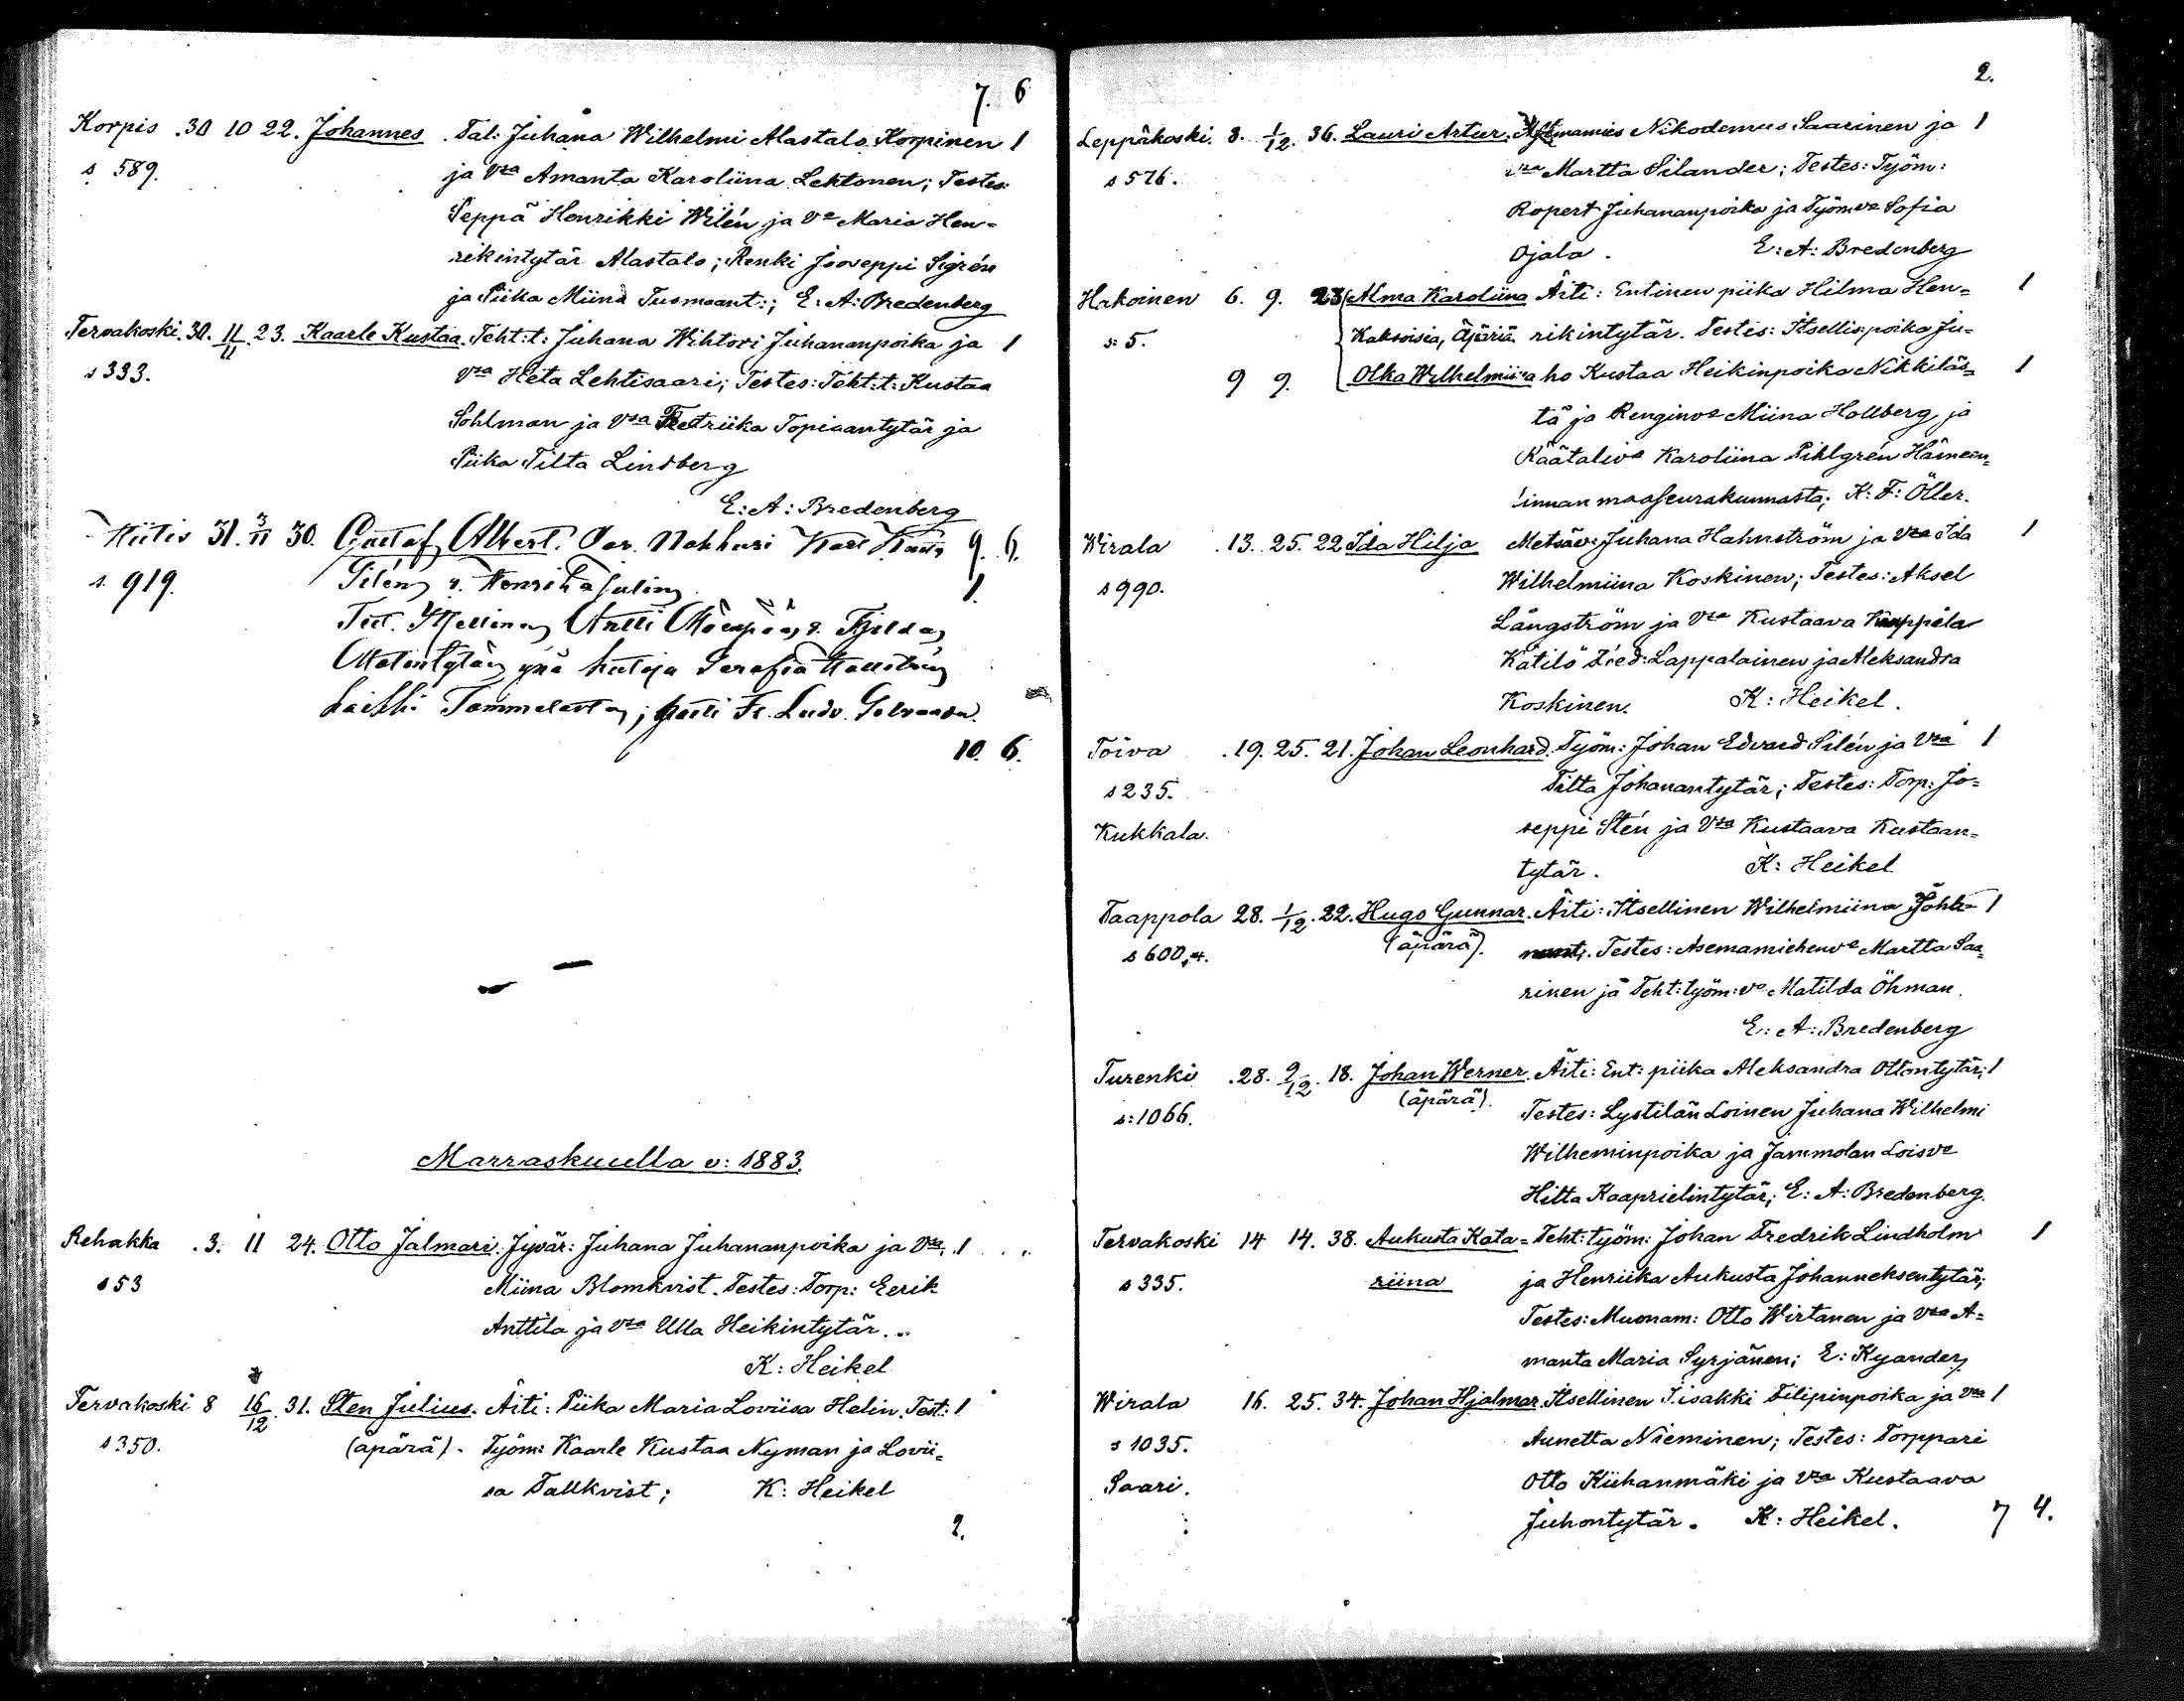 7. 6
Korpis .30 10 22. Johannes . Tal: Juhana Wilhelmi Alastalo Korpinen 1
s 589. ja Vsa Amanta Karoliina Lehtonen; Testes:
Seppä Henrikki Wilén ja Va Maria Hen-
rikintytär Alastalo; Renki Jooseppi Sigrén
ja Piika Miina Tusmaant:; E: A: Bredenberg
Tervakoski. 30. 11/11. 23. Kaarle Kustaa. Teht:t: Juhana Wihtori Juhananpoika ja 1
s 333. Vsa Heta Lehtisaari; Testes: Teht:t: Kustaa
Sohlman ja Vsa Fretriika Topiaantytär ja
Piika Tilta Lindberg
E: A: Bredenberg
Hiitis 31. 3/11 30. Gustaf Albert. Nahkuri 9. 6.
s. 919. 1.
Antti
10. 6.
Marraskuulla v: 1883.
Rehakka .3. 11 24. Otto Jalmari. Jyvär: Juhana Juhananpoika ja Vsa, 1
s 53 Miina Blomkvist. Testes: Torp: Eerik
Anttila ja Vsa Ulla Heikintytär.
K: Heikel
Tervakoski 8 16/12. 31. Sten Julius. Äiti: Piika Maria Loviisa Helin. Test: 1
s 350. (äpärä). Työm: Kaarle Kustaa Nyman ja Lovii-
sa Tallkvist; K: Heikel
2.
2.
Leppäkoski. 8. 1/12. 36. Lauri Artur. Nikodemus Saarinen ja 1
s 576. Martta Silander; Testes: Työm:
Ropert Juhananpoika ja Työmva Sofia
Ojala. E: A: Bredenberg
Hakoinen 6. 9. 23 Alma Karoliina Äiti: Entinen piika Hilma Hen- 1
s: 5. Kaksoisia, Äpäriä rikintytär. Testis: Itsellis:poika Ju-
9 9. Olka Wilhelmiina ho Kustaa Heikinpoika Nikkiläs- 1
tä ja Renginva Miina Hollberg ja
Räätaliva Karoliina Pihlgrén Hämeen-
linnan maaseurakunnasta; K: F: Öller.
Wirala .13. 25. 22 Ida Hilja Metsäv: Juhana Hahnström ja Vsa Ida 1
s 990. Wilhelmiina Koskinen; Testes: Aksel
Långström ja Vsa Kustaava Kauppila
Kätilö Lappalainen ja Aleksandra
Koskinen. K: Heikel.
Toiva .19. 25. 21. Johan Leonhard. Työm: Johan Edvard Silén ja Vsa 1
s 235. Tilta Johanantytär; Testes: Torp: Jo-
Kukkala. seppi Stén ja Vsa Kustaava Kustaan-
tytär. K: Heikel
Taappola 28. 1/12. 22. Hugo Gunnar. Äiti: Itsellinen Wilhelmiina 1
s 600,4. (äpärä). Testes: Asemamiehenva Martta Saa-
rinen ja Teht:työm:va Matilda Öhman.
E: A: Bredenberg
Turenki .28. 9/12. 18. Johan Werner. Äiti: Ent: piika Aleksandra Ottontytär; 1
s: 1066. (äpärä). Testes: Lystilän Loinen Juhana Wilhelmi
Wilheminpoika ja Jammolan Loisva
Hilta Kaaprielintytär; E: A: Bredenberg.
Tervakoski 14 14. 38. Aukusta Kata- Teht: työm: Johan Fredrik Lindholm 1
s 335. riina ja Henriika Aukusta Johanneksentytär;
Testes: Muonam: Otto Wirtanen ja Vsa A-
manta Maria Syrjänen; E: Kyander,
Wirala 16. 25. 34. Johan Hjalmar. Itsellinen Iisakki Filipinpoika ja Vsa 1
s 1035. Aunetta Nieminen; Testes: Torppari
Saari. Otto Kiihanmäki ja Vsa Kustaava
Juhontytär. K: Heikel. 7 4.